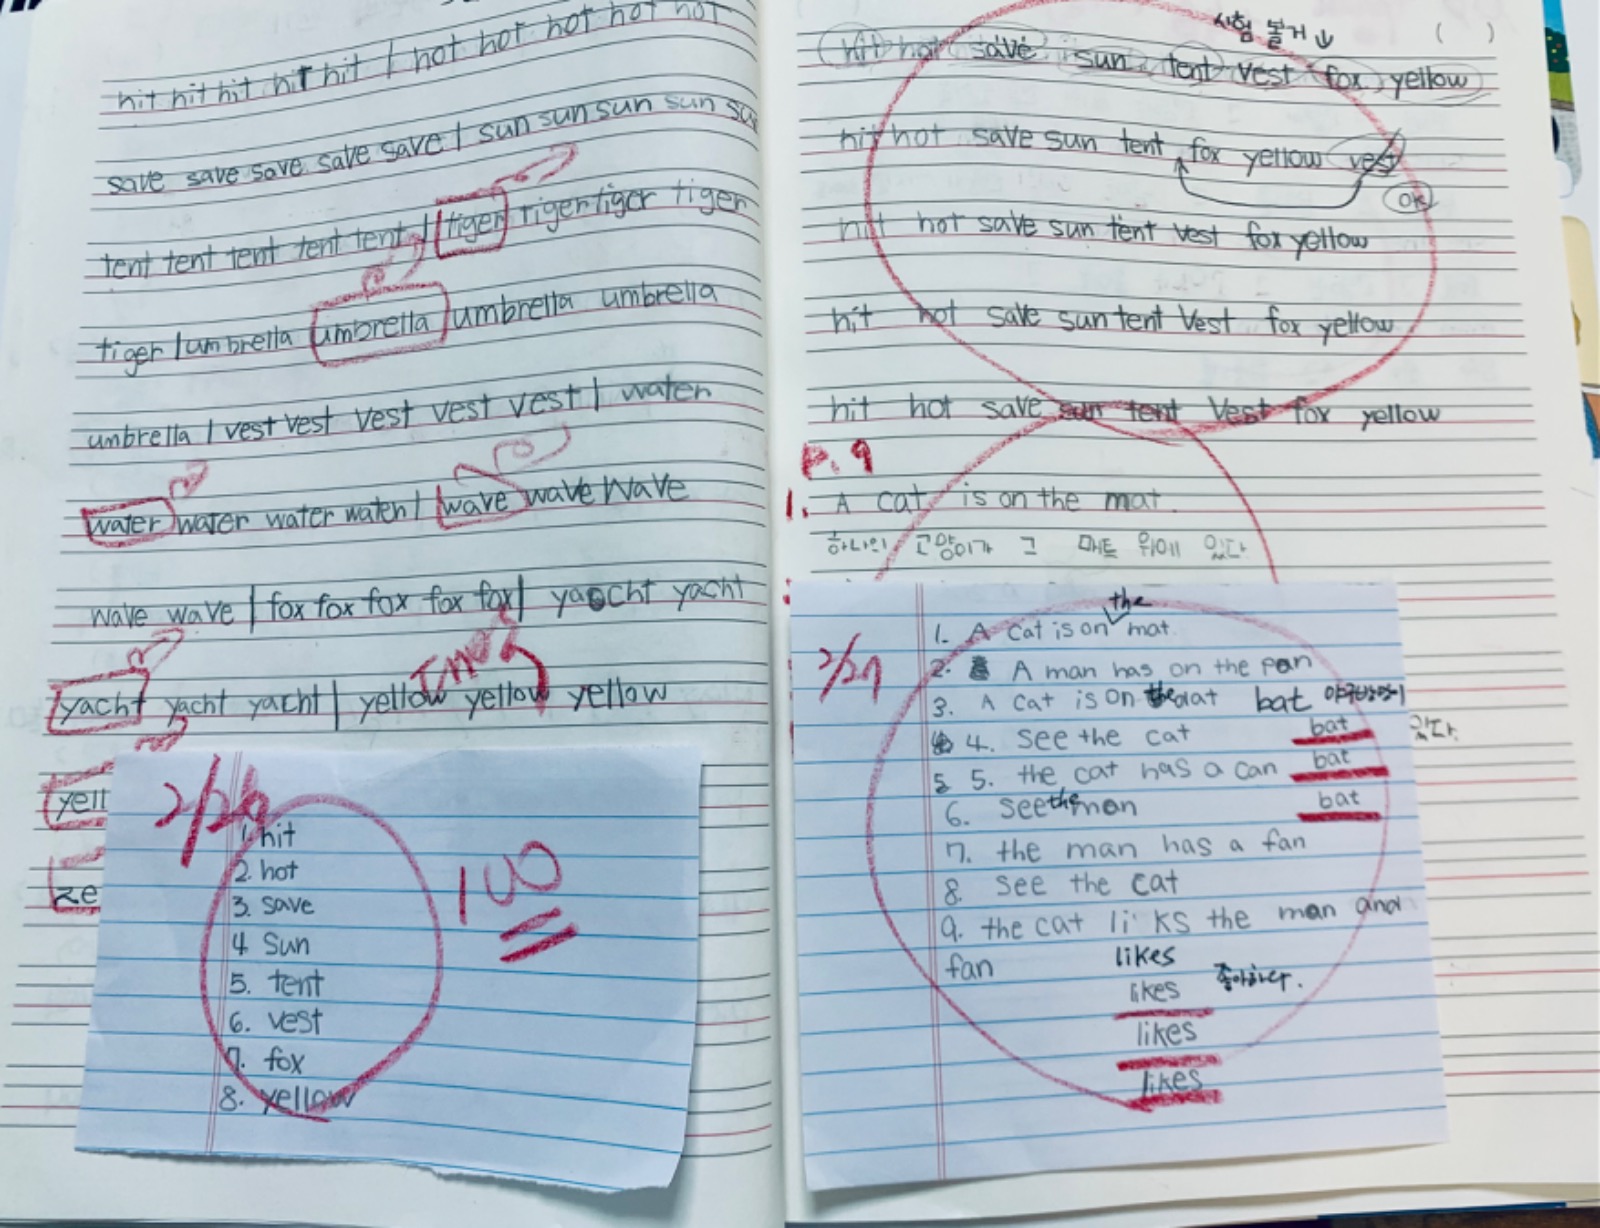 hit hit hit hit hit | hot hot hot hot hot
save save save save save | sun sun sun sun
tent tent tent tent tent | tiger tiger tiger tiger
tiger | umbrella umbrella umbrella umbrella
umbrella | vest vest vest vest vest | water
water water water water | wave wave wave
wave wave | fox fox fox fox fox | yacht yacht
yacht yacht yacht | yellow yellow yellow
yell
ze
1. hit
2. hot
3. save
4. sun
5. tent
6. vest
7. fox
8. yellow
100
시험 볼거 ↓ ( )
hit hot save sun tent vest fox yellow
hit hot save sun tent fox yellow vest
OK
hit hot save sun tent vest fox yellow
hit hot save sun tent vest fox yellow
hit hot save sun tent vest fox yellow
P. 9
1. A cat is on the mat.
하나의 고양이가 그 매트 위에 있다
2/27
1. A cat is on the mat.
2. A man has on the pan
3. A cat is on the mat bat 야구방망이
4. see the cat bat
있다.
5. the cat has a can bat
6. see the man bat
7. the man has a fan
8. see the cat
9. the cat li ks the man and
fan likes
likes 좋아하다.
likes
likes